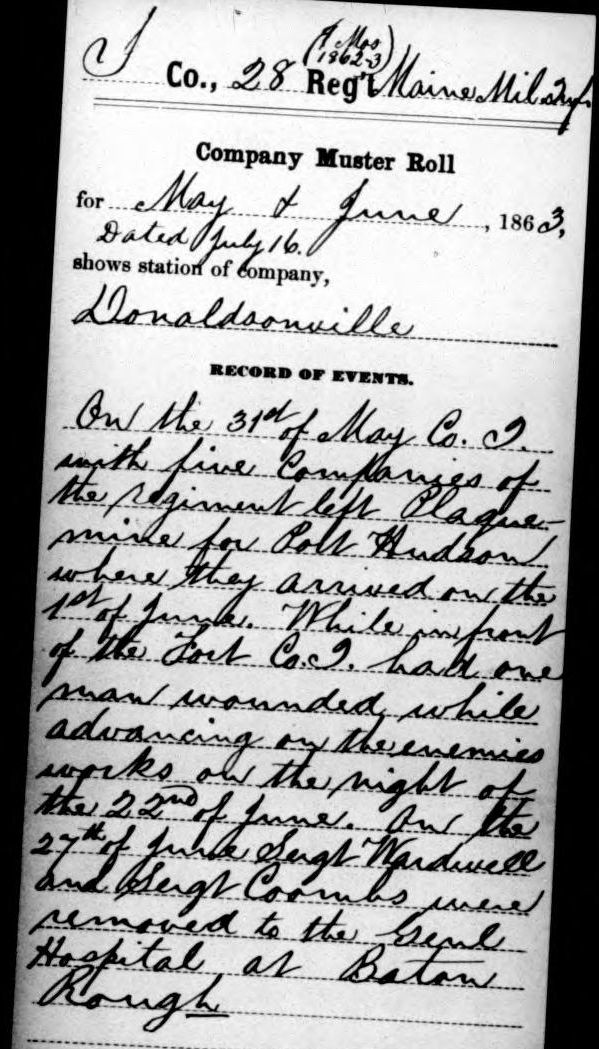 (9 Mos
1862-3)
I Co., 28 Reg't Maine Mil. Inf.
Company Muster Roll
for May & June, 1863,
Dated July 16.
shows station of company,
Donaldsonville
RECORD OF EVENTS.
On the 31st of May Co. I.
with five Companies of
the regiment left Plaque-
mine for Port Hudson
where they arrived on the
1st of June. While in front
of the Fort Co. I. had one
man wounded, while
advancing on the enemies
works on the night of
the 22nd of June. On the
27th of June Sergt Wardwell
and Sergt Coombs were
removed to the Genl
Hospital at Baton
Rough